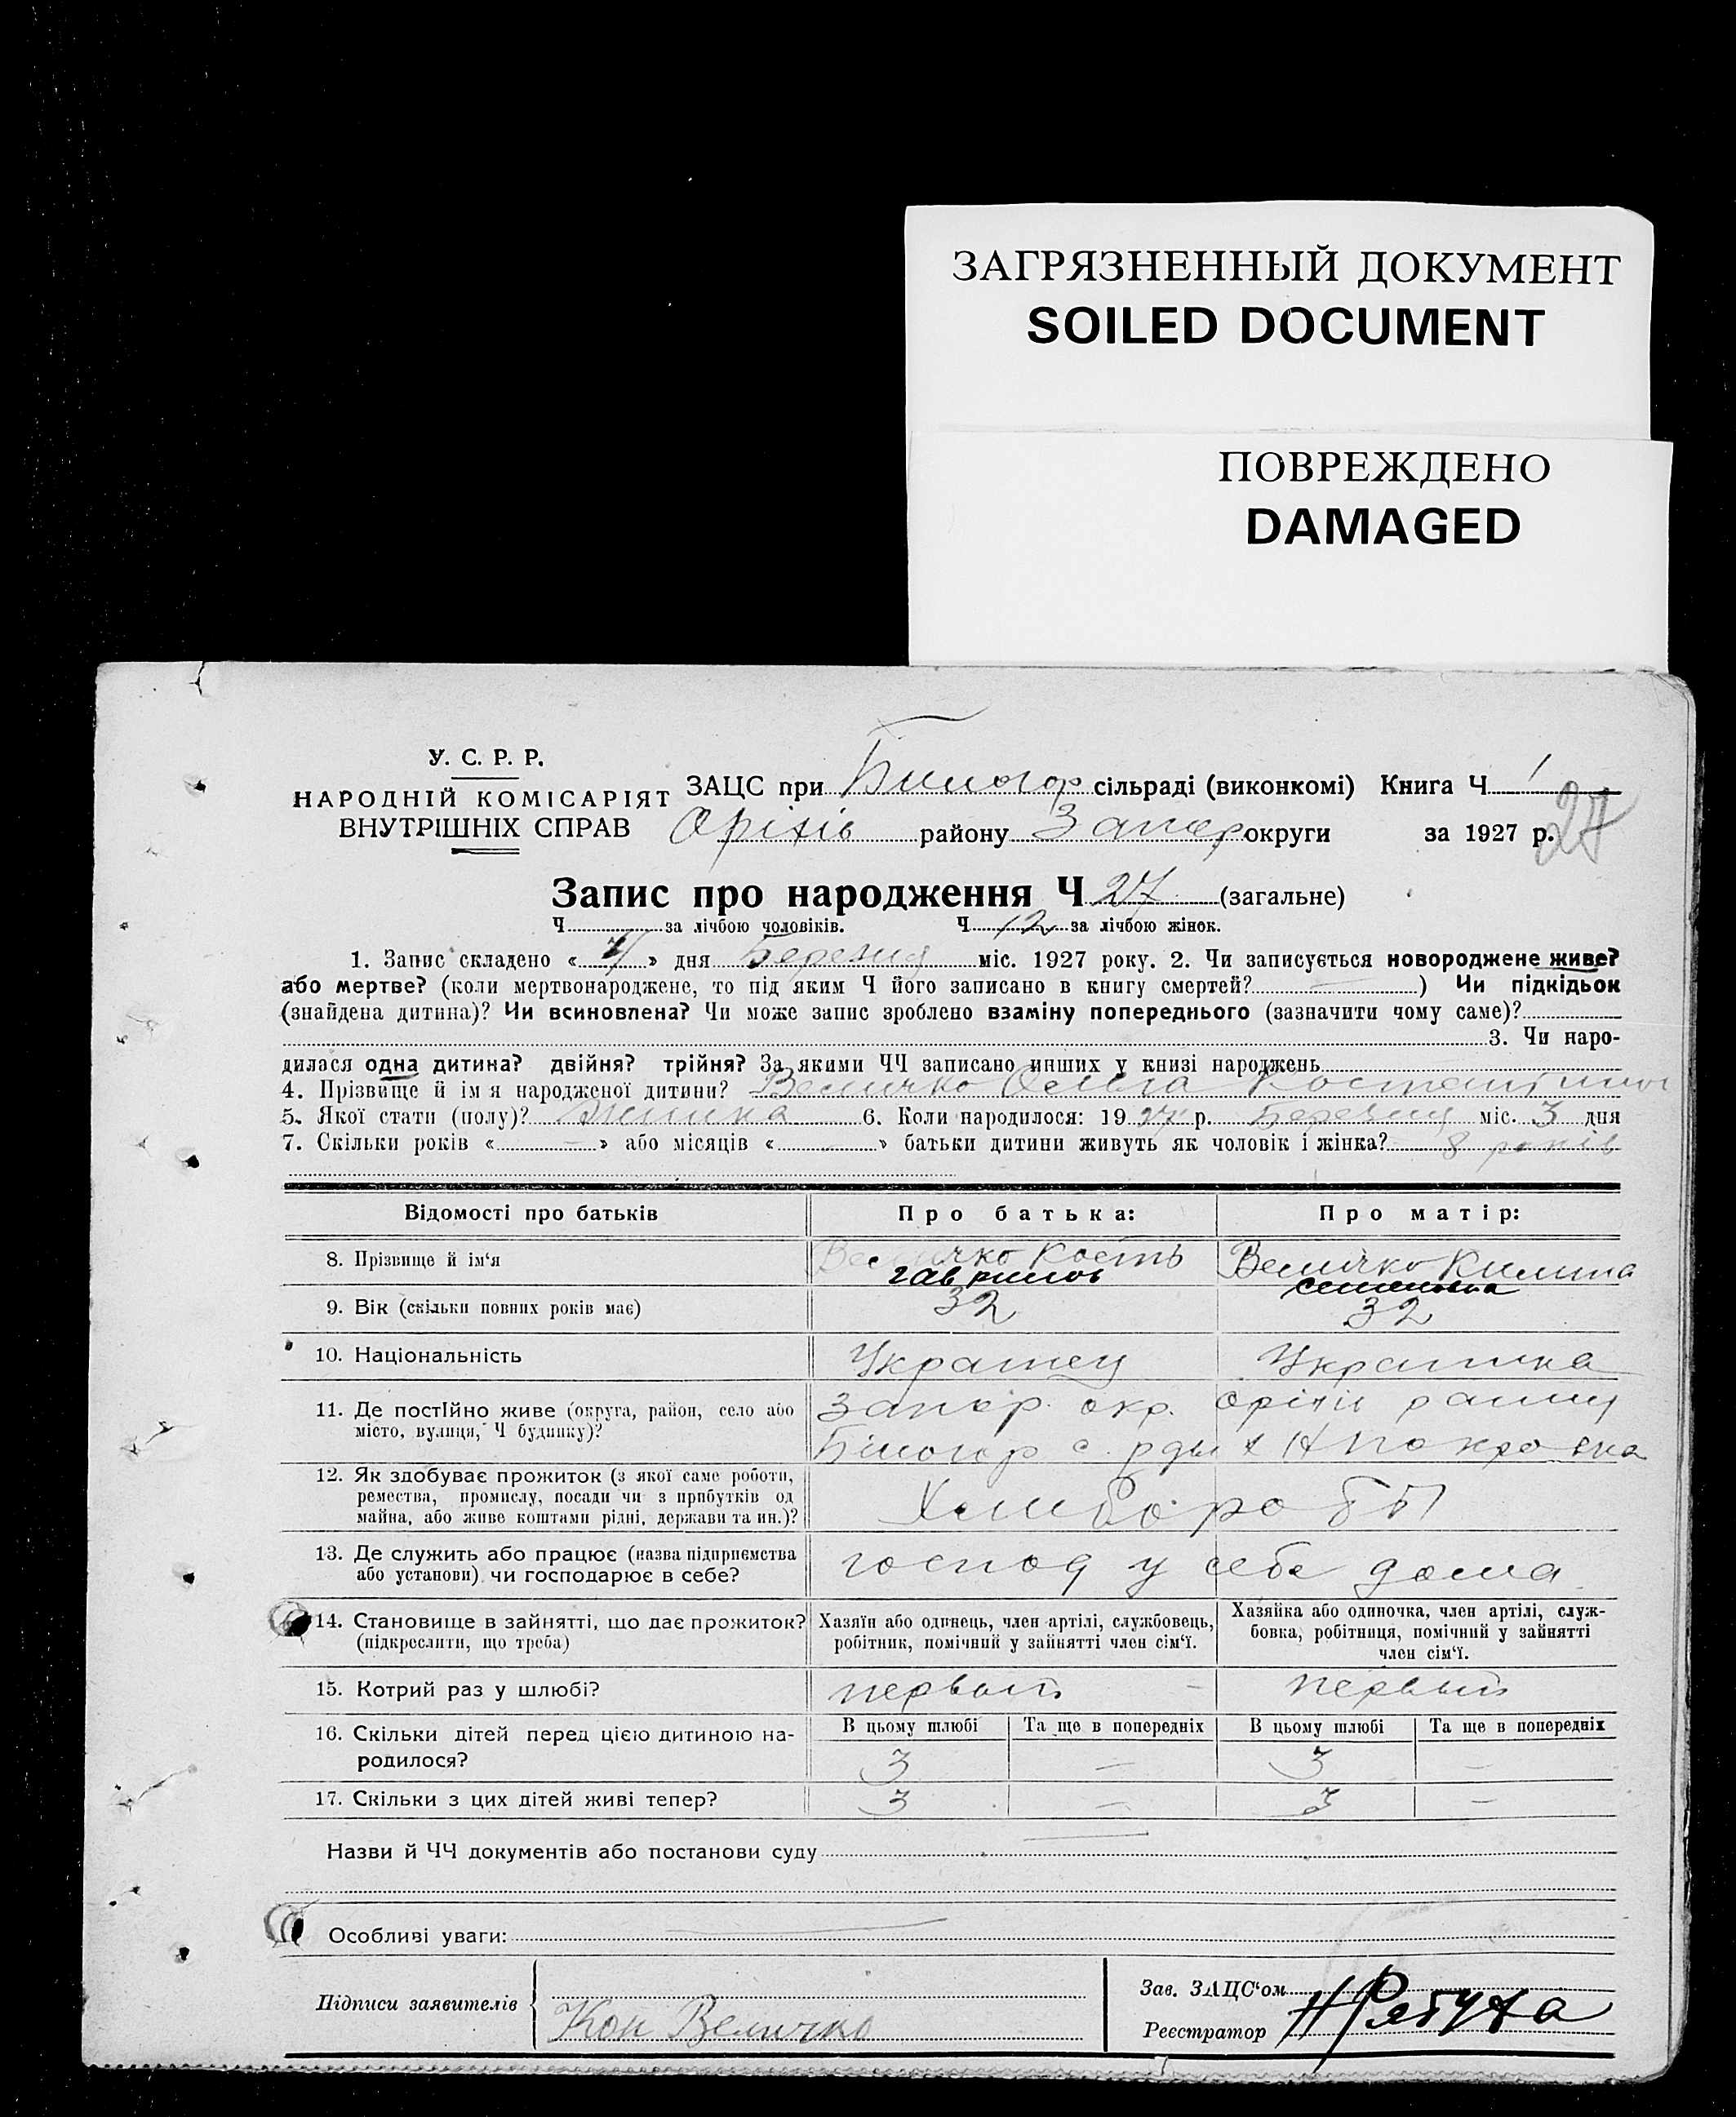 ЗАГРЯЗНЕННЫЙ ДОКУМЕНТ
SOILED DOCUMENT
ПОВРЕЖДЕНО
DAMAGED
У. С. Р. Р.
НАРОДНІЙ КОМІСАРІЯТ
ВНУТРІШНІХ СПРАВ
ЗАЦС при Билогор сільраді (виконкомі) Книга Ч 1
Оріхів району Запор округи за 1927 р. 27
Запис про народження Ч 27 (загальне)
Ч за лічбою чоловіків. Ч 12 за лічбою жінок.
1. Запис складено « » дня Березня міс. 1927 року. 2. Чи записується новороджене живе?
або мертве? (коли мертвонароджене, то під яким Ч його записано в книгу смертей? —) Чи підкідьок
(знайдена дитина)? Чи всиновлена? Чи може запис зроблено взаміну попереднього (зазначити чому саме)?
3. Чи наро-
дилася одна дитина? двійня? трійня? За якими ЧЧ записано инших у книзі народжень
4. Прізвище й ім я народженої дитини? Величко Ольга
5. Якої стати (полу)? 6. Коли народилося: 19 27 р. Березня міс. 3 дня
7. Скільки років « — » або місяців « — » батьки дитини живуть як чоловік і жінка? 8 років
Відомості про батьків Про батька: Про матір:
8. Прізвище й ім‘я Величко Кость Величко Килина
гаврилов семеновна
9. Вік (скільки повних років має) 32 32
10. Національність Украинец Украинка
11. Де постІйно живе (округа, район, село або Запор. окр. Оріхів
місто, вулиця, Ч будинку)? Білогор с.
12. Як здобуває прожиток (з якої саме роботи,
ремества, промислу, посади чи з прибутків од
майна, або живе коштами рідні, держави та ин.)?
13. Де служить або працює (назва підприємства господ у себе дома
або установи) чи господарює в себе?
14. Становище в зайнятті, що дає прожиток? Хазяїн або одинець, член артілі, службовець, Хазяйка або одиночка, член артілі, служ-
(підкреслити, що треба) робітник, помічний у зайнятті член сім‘ї. бовка, робітниця, помічний у зайнятті
член сім‘ї.
15. Котрий раз у шлюбі? первый — первый
16. Скільки дітей перед цією дитиною на- В цьому шлюбі Та ще в попередніх В цьому шлюбі Та ще в попередніх
родилося? 3 — 3 —
17. Скільки з цих дітей живі тепер? 3 — 3 —
Назви й ЧЧ документів або постанови суду
Особливі уваги:
Підписи заявителів
Кон Величко
Зав. ЗАЦС‘ом
Реєстратор